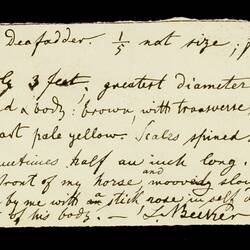 Deafadder. 1/5 nat size;
ly 3 feet, greatest diameter
d & body: brown, with transverse
art pale yellow. Scales spined
metimes half an inch long.
front of my horse, and mooved slow
by me with a stick rose in self d
of his body. — L. Becker